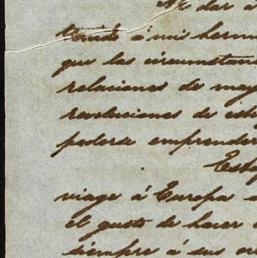 No dar a
à mis herm
que las circumstan
relaciones de may
revoluciones de est
poderse emprender
Esto
viage à Europa
el gusto de hacer
siempre à sus or